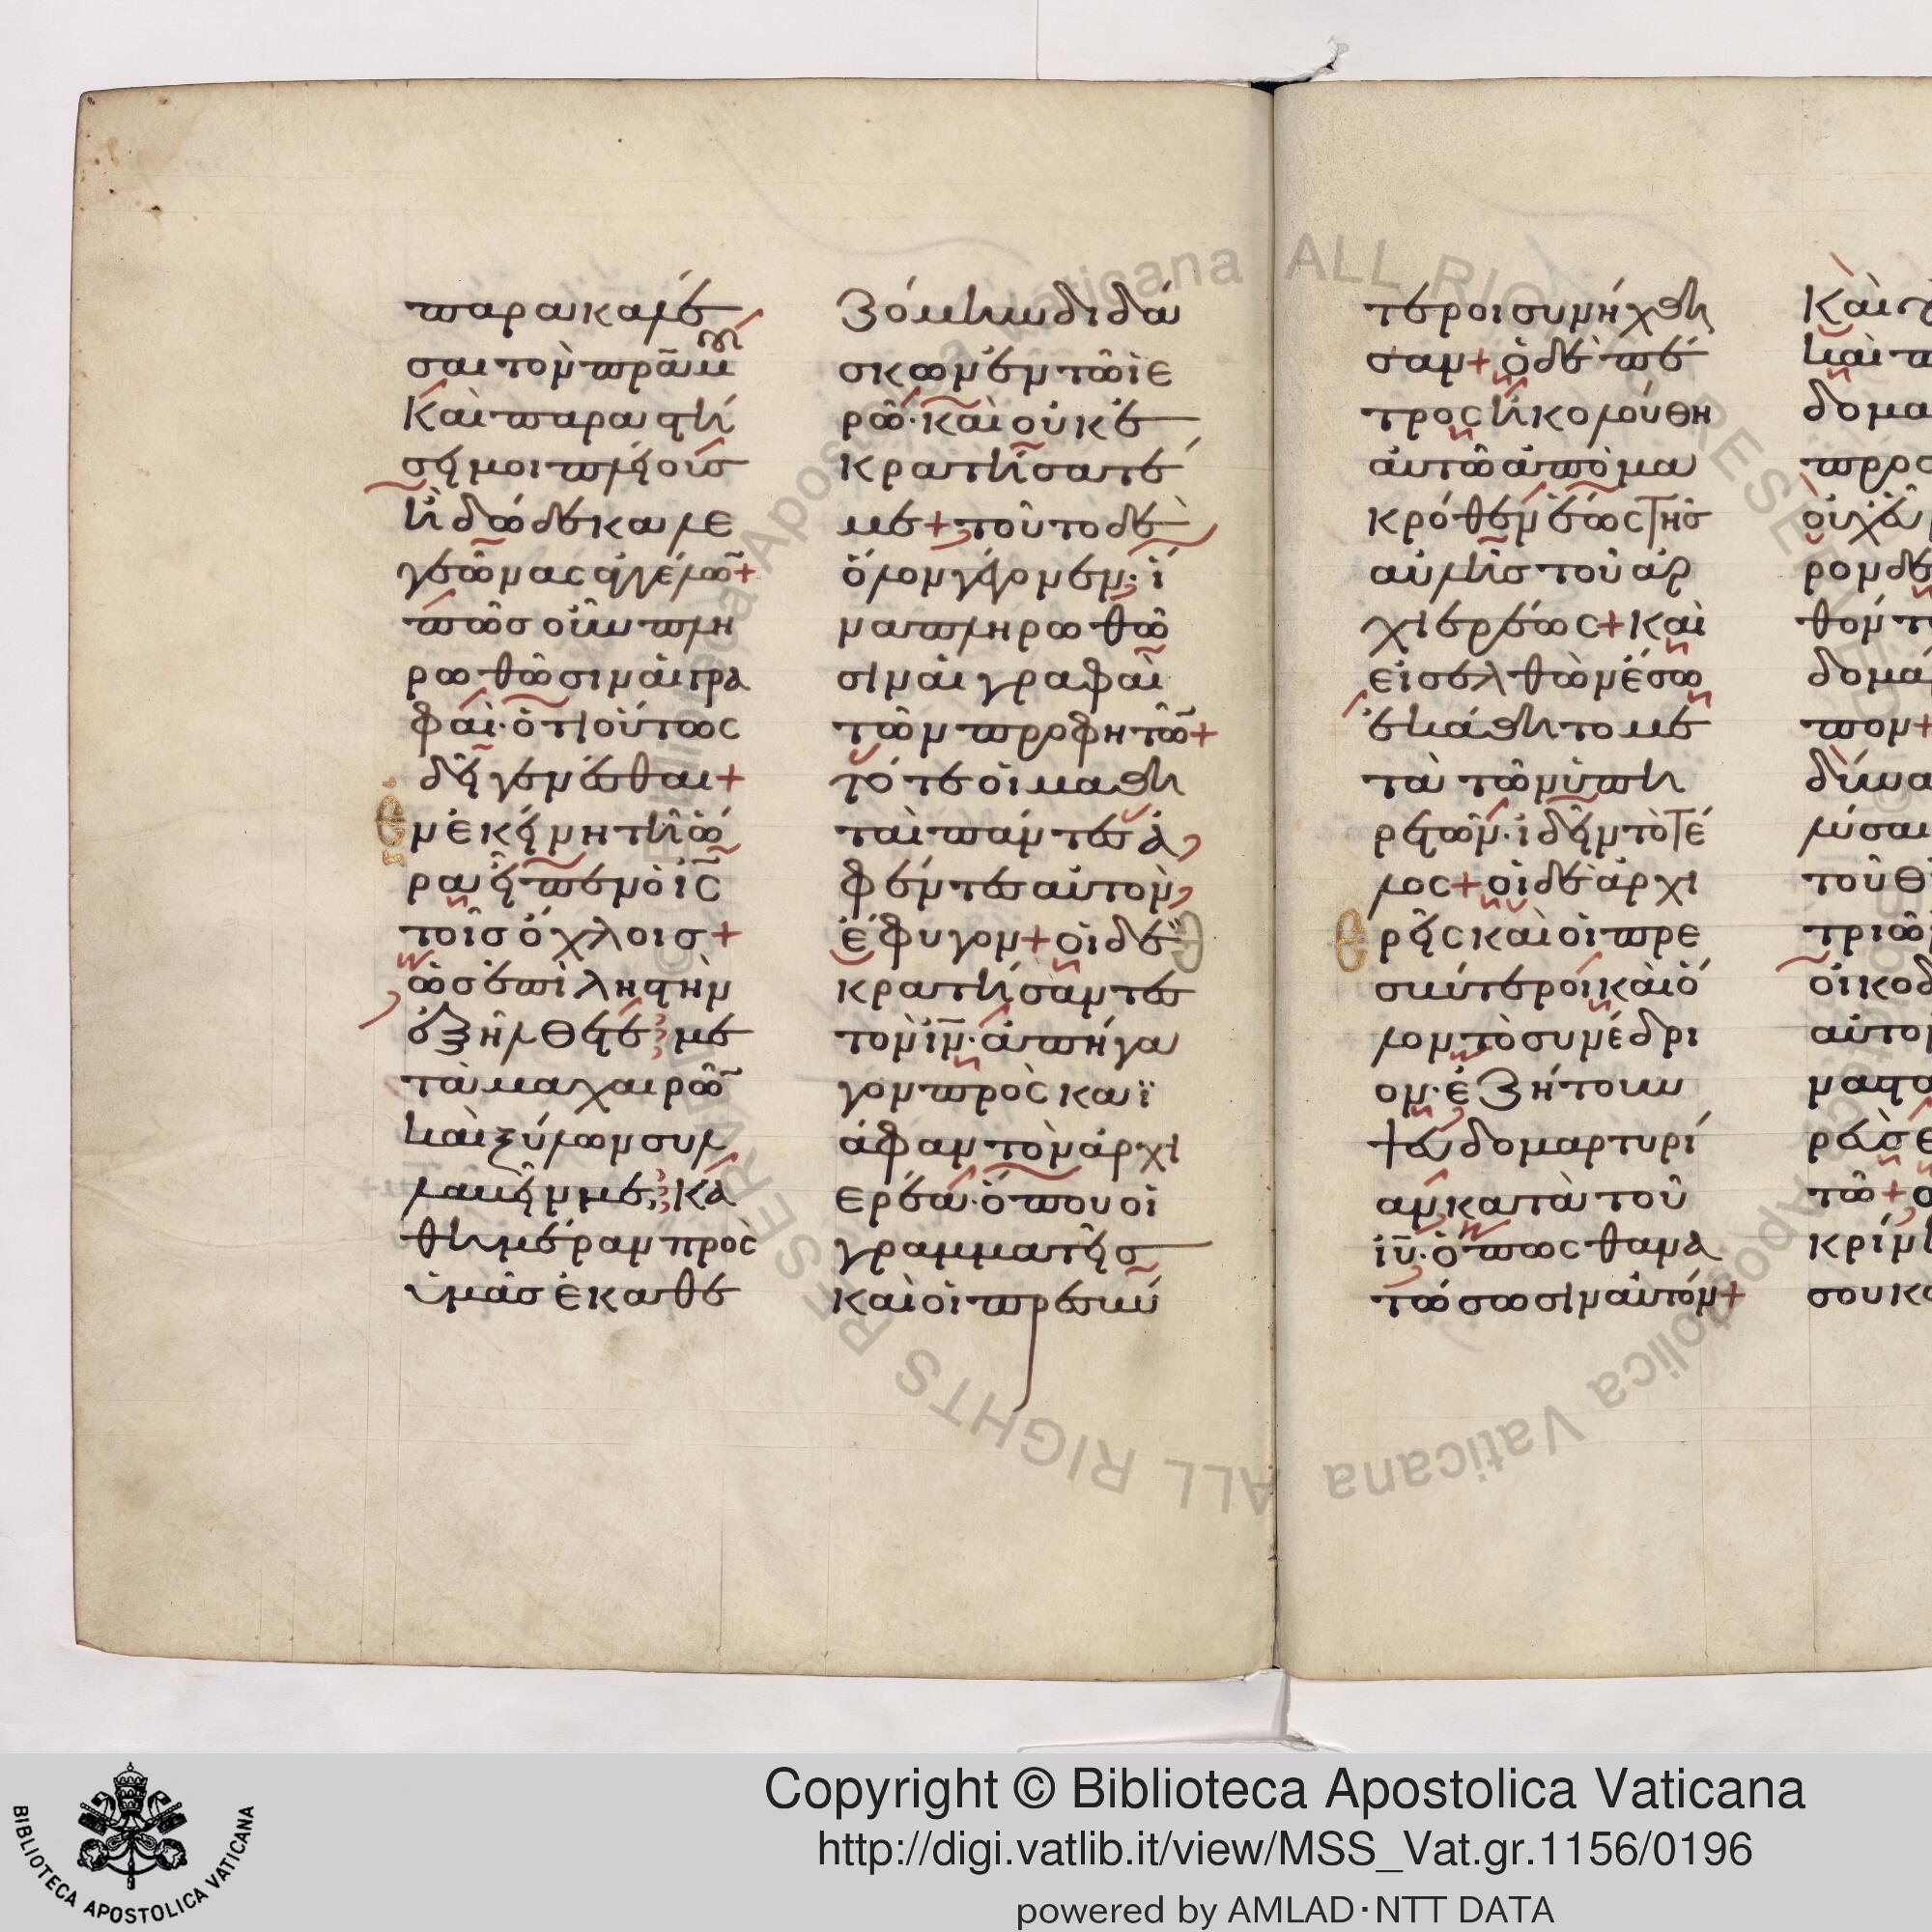 παρακαλέ
σαι τὸν πρ̅α μου
καὶ παραστή
σει μοι πλείους
ἢ δώδεκα λε
γεῶνας ἀγγέλω̅+
πῶς οὖν πλη
ρωθῶσιν αἱ γρα
φαί· ὅτι οὕτως
δεῖ γενέσθαι+
Ἐν ἐκείνη τῆ ὥ
ρα εἶπεν ὁ ι̅ς
τοῖς ὄχλοις+
ὡς ἐπὶ ληστὴν
ἐξήλθετε με
τὰ μαχαιρῶ̅
καὶ ξύλων συλ
λαβεῖν με, κα
θημέραν πρὸς
ὑμᾶς ἐκαθε
ζόμην διδά
σκων ἐν τῶ ἱε
ρῶ· καὶ οὐκ ἐ
κρατήσατέ
με+ τοῦτο δὲ
ὅλον γέγονεν· ἵ
να πληρωθῶ
σιν αἱ γραφαὶ
τῶν προφητῶ̅+
τότε οἱ μαθη
ταὶ πάντες ἀ
φέντες αὐτὸν,
ἔφυγον+ οἱ δὲ
κρατήσαντες
τὸν ι̅ν· ἀπήγα
γον πρὸς καϊ
άφαν τὸν ἀρχι
ερέα· ὅπου οἱ
γραμματεῖς
καὶ οἱ πρεσβύ
τεροι συνήχθη
σαν+ ὁ δὲ πέ
τρος ἠκολούθη
αὐτῶ ἀπὸ μα
κρόθεν ἕως τῆς
αὐλῆς τοῦ ἀρ
χιερέως+ καὶ
εἰσελθὼν ἔσω
ἐκάθητο με
τὰ τῶν ὑπη
ρετῶν· ἰδεῖν τὸ τέ
λος+ οἱ δὲ ἀρχι
ερεῖς καὶ οἱ πρε
σβύτεροι καὶ ὅ
λον τὸ συνέδρι
ον· ἐζήτουν
ψευδομαρτυρί
αν κατὰ τοῦ
ι̅υ· ὅπως θανα
τώσωσιν αὐτόν+
Copyright © Biblioteca Apostolica Vaticana
http://digi.vatlib.it/view/MSS_Vat.gr.1156/0196
powered by AMLAD·NTT DATA
BIBLIOTECA APOSTOLICA VATICANA